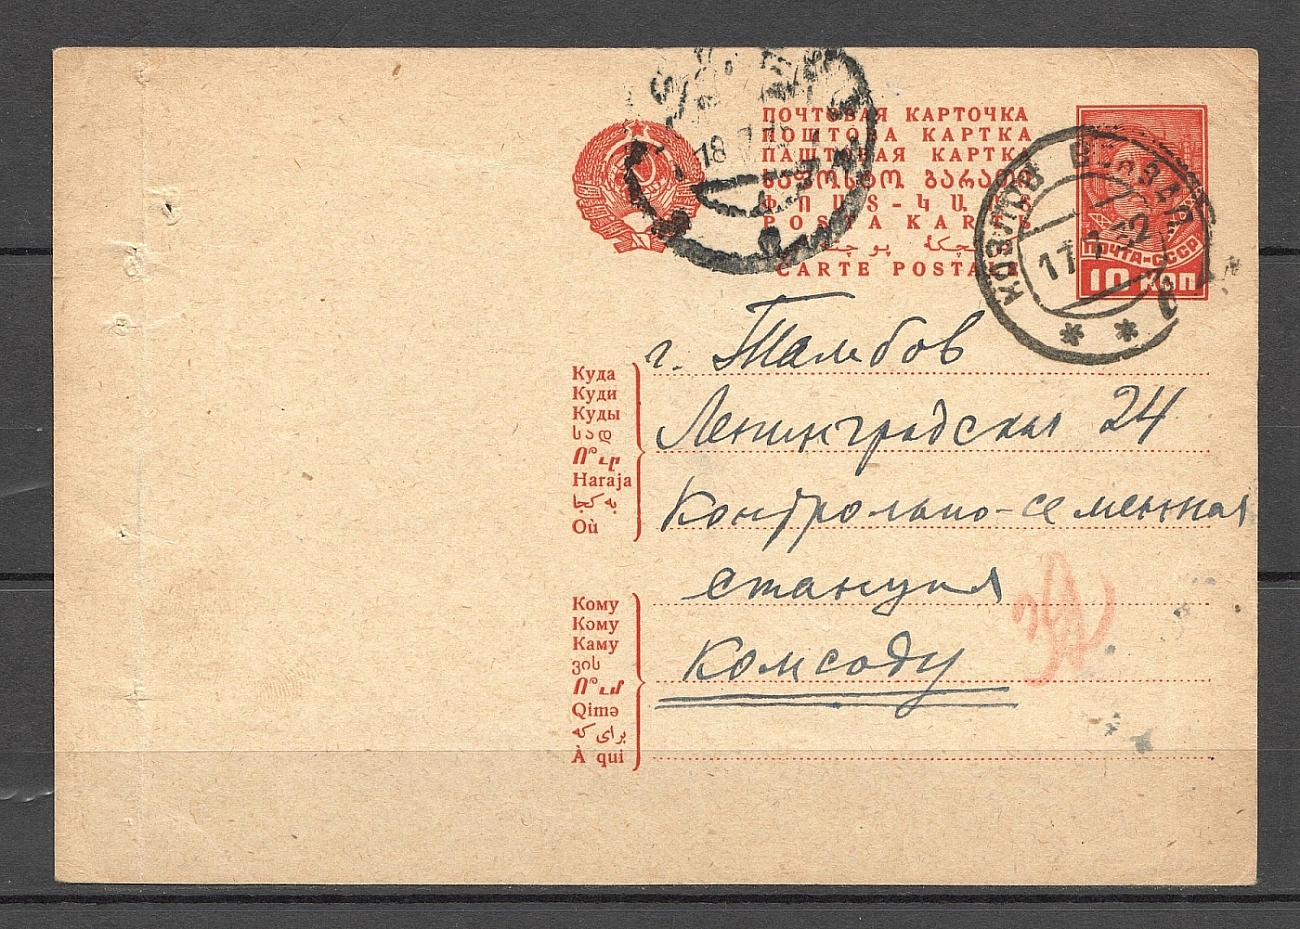 ПОЧТОВАЯ КАРТОЧКА
ПОШТОВА КАРТКА
ПАШТОВАЯ КАРТКА
ᲡᲐᲤᲝᲡᲢᲝ ᲑᲐᲠᲐᲗᲘ
ՓՈՍՏ-ՔԱՐՏ
POSTA KARTЬ
CARTE POSTALE
ПОЧТА-СССР
10 КОП
КОЗЛОВ ВОКЗАЛ
17 1 32
18
г. Тамбов
Куда
Куди
Куды
სად
Ո՞ւր
Haraja
به کجا
Où
Ленинградская 24
Контрольно-семенная
станция
Кому
Кому
Каму
ვის
Ո՞ւմ
Qimə
برای که
À qui
Комсоду